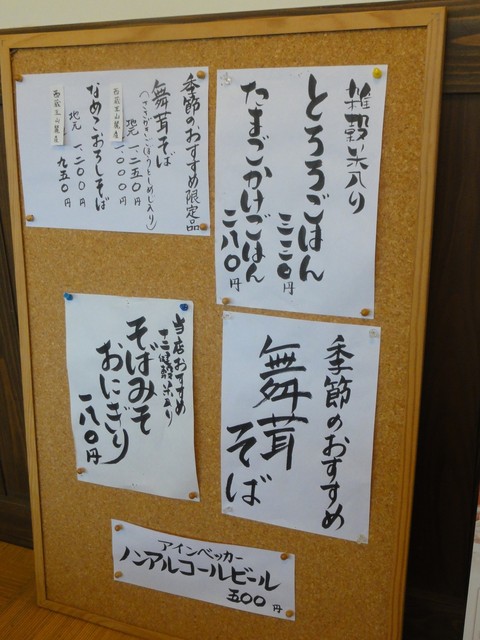 雑穀米入り
とろろごはん
三三〇円
たまごかけごはん
二八〇円
季節のおすすめ限定品
舞茸そば
(ささがきごぼうとしめじ入り)
地元
一、二五〇円
一、〇〇〇円
西蔵王山麓産
なめこおろしそば
地元
一、二〇〇円
九五〇円
西蔵王山麓産
季節のおすすめ
舞茸
そば
当店おすすめ
十二種雑穀米入り
そばみそ
おにぎり
一八〇円
アインベッカー
ノンアルコールビール
五〇〇円